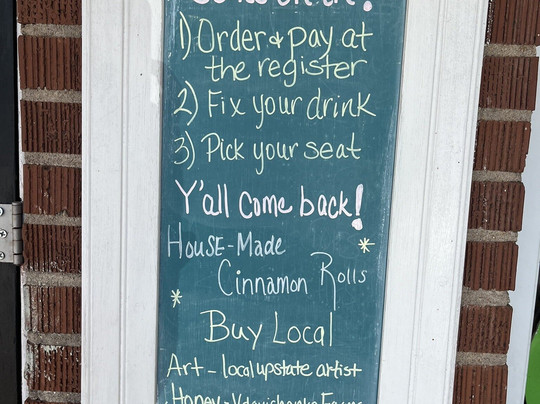 1) Order & pay at
the register
2) Fix your drink
3) Pick your seat
Y'all come back!
House-Made
Cinnamon Rolls
Buy Local
Art - local upstate artist
Honey -